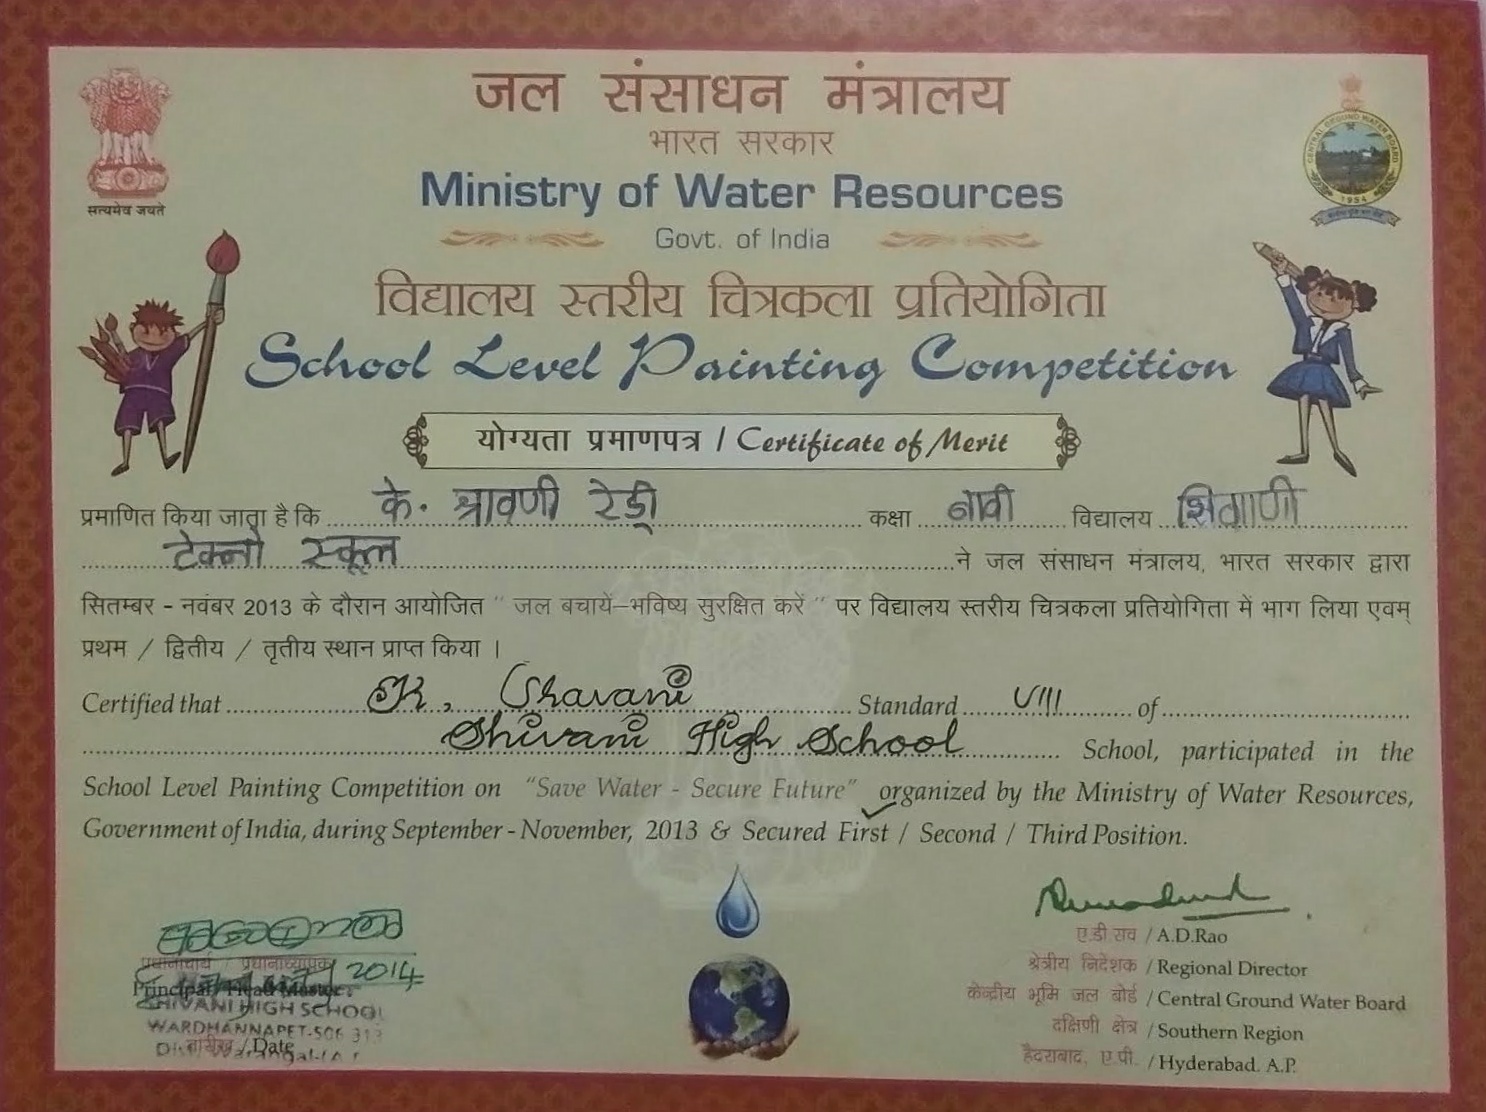 जल संसाधन मंत्रालय
भारत सरकार
Ministry of Water Resources
Govt. of India
सत्यमेव जयते
CENTRAL GROUND WATER BOARD
1954
विद्यालय स्तरीय चित्रकला प्रतियोगिता
School Level Painting Competition
योग्यता प्रमाणपत्र / Certificate of Merit
प्रमाणित किया जाता है कि के. श्रावणी रेड्डी कक्षा विद्यालय
टेक्नो स्कूल ने जल संसाधन मंत्रालय, भारत सरकार द्वारा
सितम्बर - नवंबर 2013 के दौरान आयोजित " जल बचायें–भविष्य सुरक्षित करें " पर विद्यालय स्तरीय चित्रकला प्रतियोगिता में भाग लिया एवम्
प्रथम / द्वितीय / तृतीय स्थान प्राप्त किया ।
Certified that K. Shravani Standard VIII of
Shivani High School School, participated in the
School Level Painting Competition on "Save Water - Secure Future" organized by the Ministry of Water Resources,
Government of India, during September - November, 2013 & Secured First / Second / Third Position.
प्रधानाचार्य / प्रधानाध्यापक 2014
Principal / Head Master
SHIVANI HIGH SCHOOL
WARDHANNAPET-506 313
तारीख / Date
ए.डी.राव / A.D.Rao
क्षेत्रीय निदेशक / Regional Director
केन्द्रीय भूमि जल बोर्ड / Central Ground Water Board
दक्षिणी क्षेत्र / Southern Region
हैदराबाद, ए.पी. / Hyderabad. A.P.